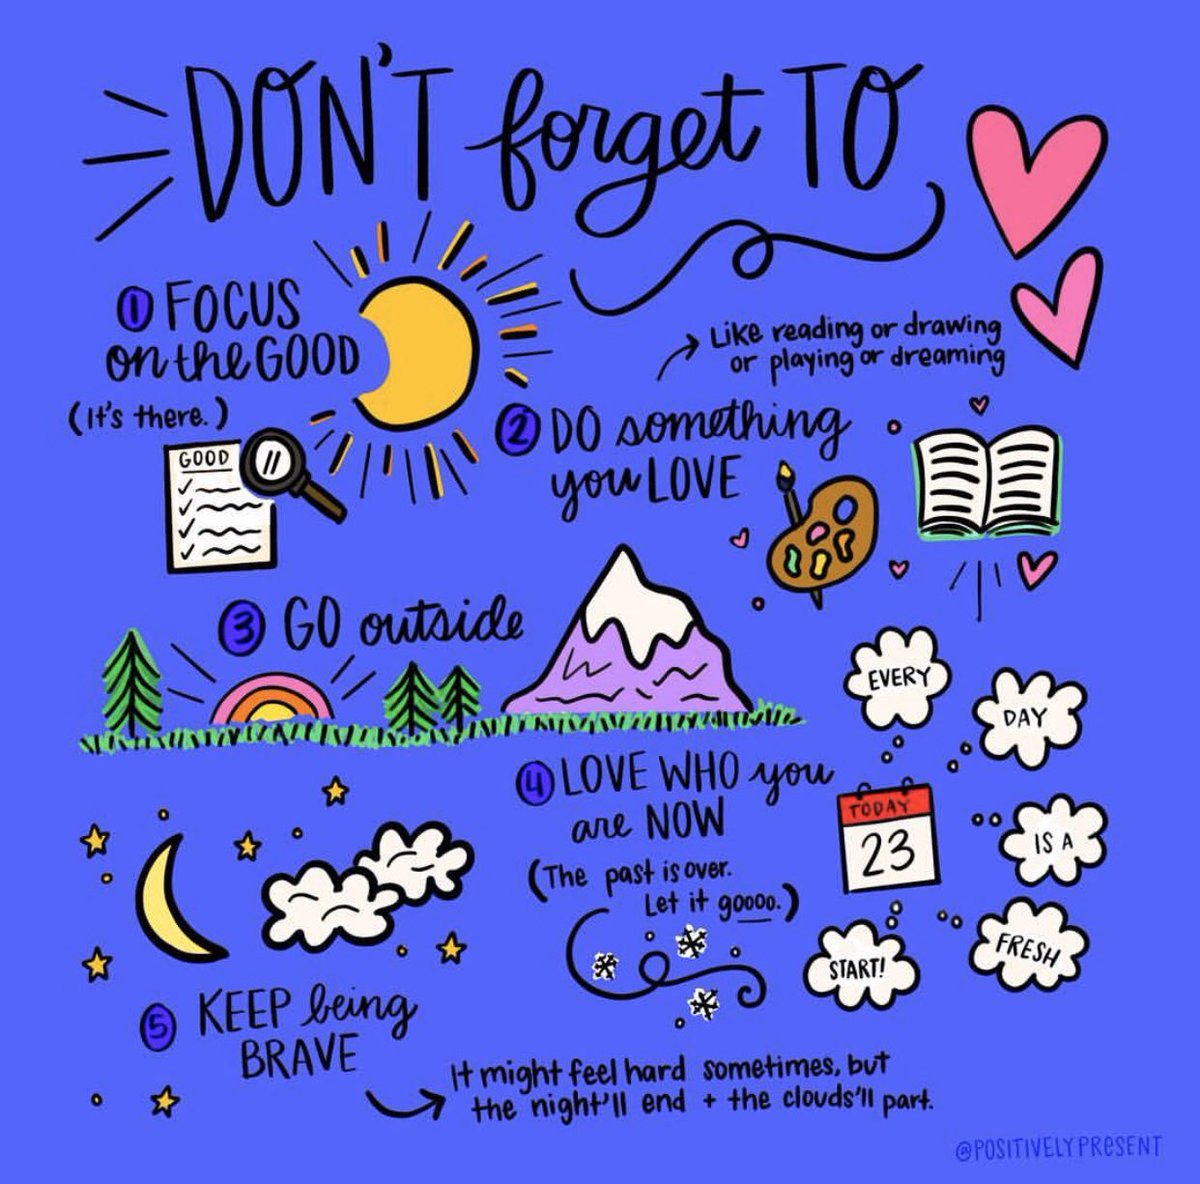 DON'T forget TO
1 FOCUS
on the GOOD
(It's there.)
GOOD
Like reading or drawing
or playing or dreaming
2 DO something
you LOVE
3 GO outside
4 LOVE WHO you
are NOW
(The past is over.
Let it goooo.)
EVERY
DAY
IS A
FRESH
START!
TODAY
23
5 KEEP being
BRAVE
It might feel hard sometimes, but
the night'll end + the clouds'll part.
@POSITIVELYPRESENT